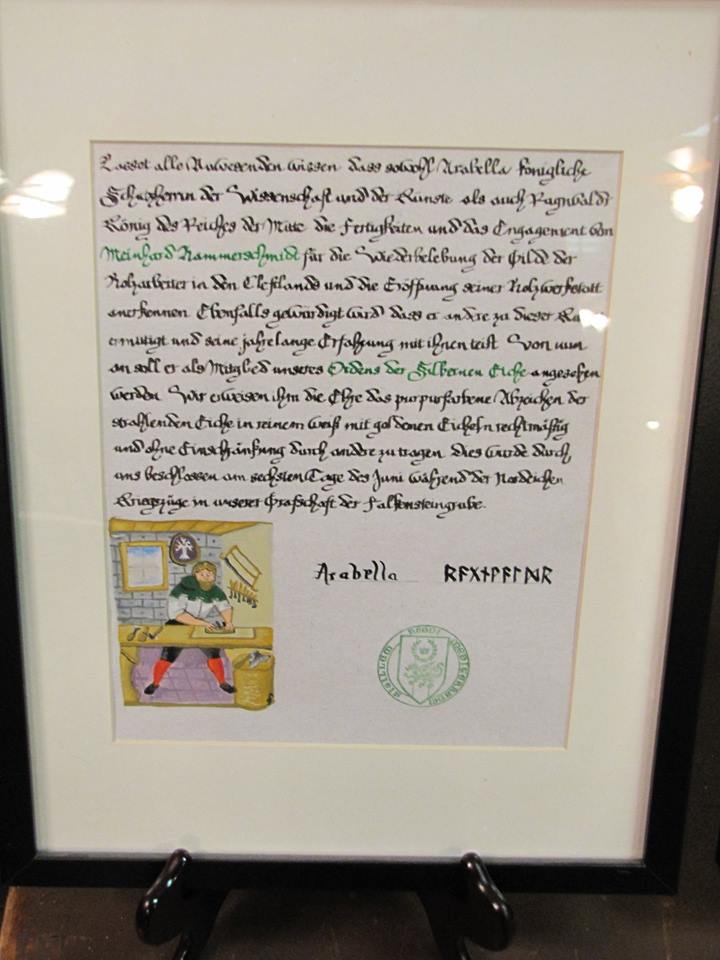 Lasset alle Anwesenden wissen dass sowohl Arabella königliche
Schutzherrin der Wissenschaft und der Künste als auch Ragnvaldr
König des Reiches der Mitte die Fertigkeiten und das Engagement von
Meinhard Hammerschmidt für die Wiederbelebung der Gilde der
Holzarbeiter in den Cleftlands und die Eröffnung seiner Holzwerkstatt
anerkennen Ebenfalls gewürdigt wird dass er andre zu dieser
ermutigt und seine jahrelange Erfahrung mit ihnen teilt Von nun
an soll er als Mitglied unseres Ordens der Silbernen Eiche angesehen
werden Wir erweisen ihm die Ehre das purpurfarbene Abzeichen der
strahlenden Eiche in reinem weiß mit goldenen Eicheln rechtmäßig
und ohne Einschränkung durch andere zu tragen Dies wurde durch
uns beschlossen am sechsten Tage des Juni während der Nordeichen
Kriegszüge in unserer Grafschaft der Falkensteingrube
Arabella ᚱᚨᚷᚾᚹᚨᛚᛞᚱ
SIGILLUM REGNI MEDITERRANEI